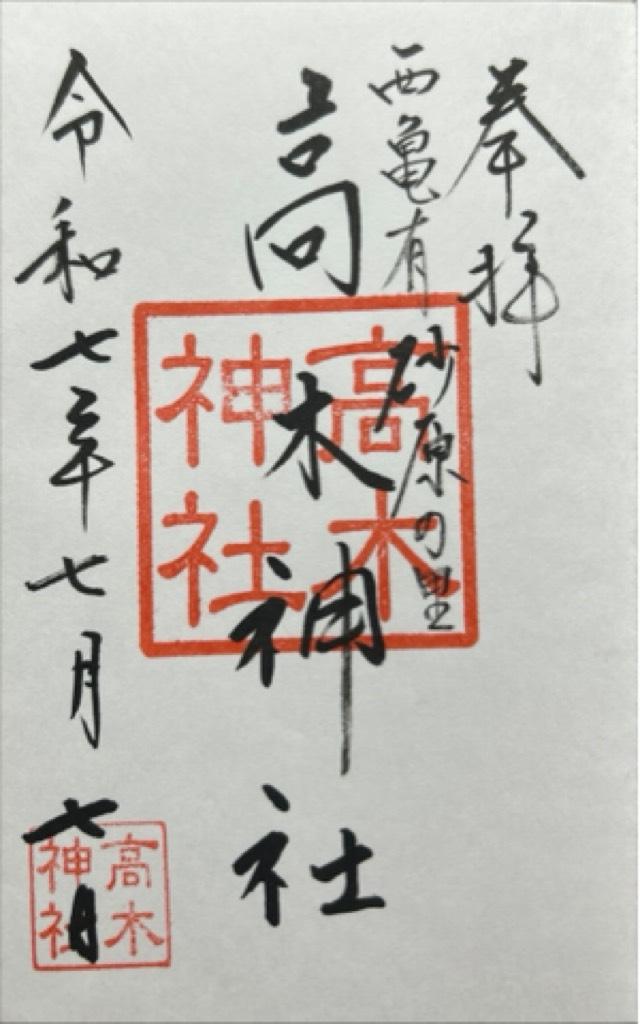 奉拝
西亀有 砂原の里
高木神社
令和七年七月七日
高木神社
高木神社